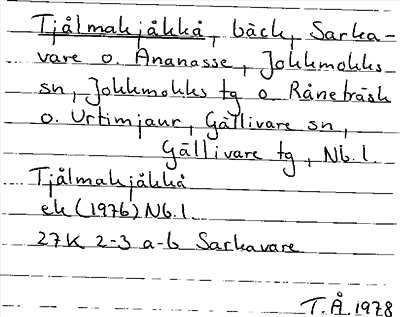 Tjålmakjåkkå, bäck, Sarka-
vare o. Ananasse, Jokkmokks
sn, Jokkmokks tg o Råneträsk
o. Urtimjaur, Gällivare sn,
Gällivare tg, Nb. l.
Tjålmakjåkkå
ek (1976) Nb. l
27K 2-3 a-b Sarkavare
T.Å. 1978